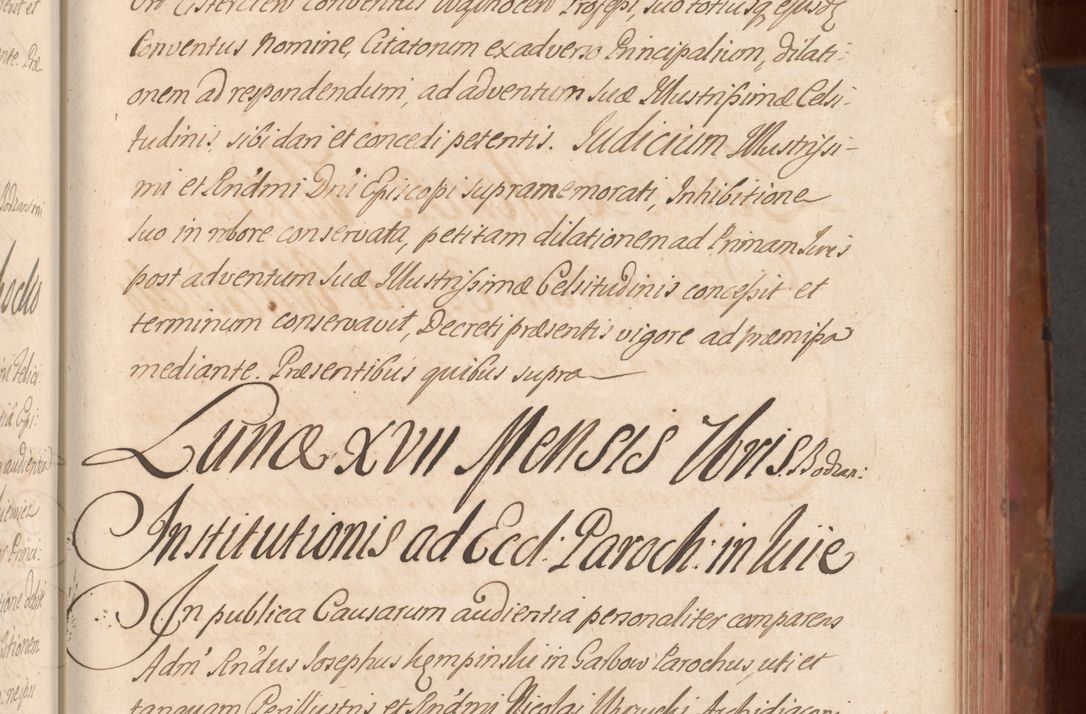 Ord Cisterciens Conventus Mogilnoen Professi, suo totiusq ejusdē
Conventus Nomine, Citatorum ex adverso Principalium, dilati:
onem ad respondendum, ad adventum Suæ Illustrissimæ Celsi:
tudinis, sibi dari et concedi petentis. Judicium Illustrissi-
mi et Rndmi Dni Episcopi supramemorati, Inhibitione
suo in robore conservata, petitam dilationem ad Primam Juris
post adventum Suæ Illustrissimæ Celsitudinis concessit et
terminum conservavit, Decreti præsentis vigore ad præmissa
mediante. Præsentibus quibus supra
Lunæ XVII Mensis 7bris. Bodzan:
Institutionis ad Eccl: Paroch: in
In publica Causarum audientia personaliter comparens
Adm Rndus Josephus Kempinski in Garbow Parochus, uti et
tanquam Perillustris et Rndmi Nicolai Archidiaconi